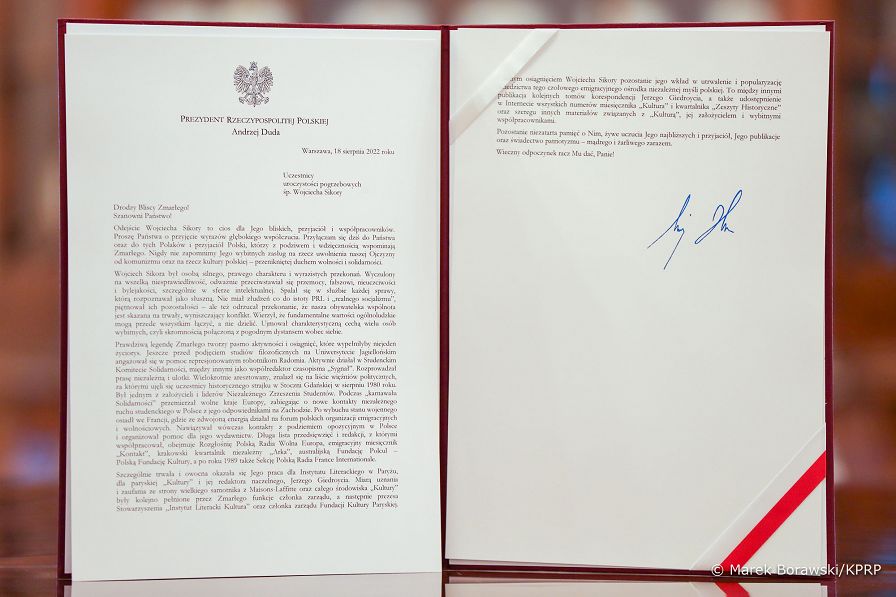 PREZYDENT RZECZYPOSPOLITEJ POLSKIEJ
Andrzej Duda
Warszawa, 18 sierpnia 2022 roku
Uczestnicy
uroczystości pogrzebowych
śp. Wojciecha Sikory
Drodzy Bliscy Zmarłego!
Szanowni Państwo!
Odejście Wojciecha Sikory to cios dla Jego bliskich, przyjaciół i współpracowników.
Proszę Państwa o przyjęcie wyrazów głębokiego współczucia. Przyłączam się dziś do Państwa
oraz do tych Polaków i przyjaciół Polski, którzy z podziwem i wdzięcznością wspominają
Zmarłego. Nigdy nie zapomnimy Jego wybitnych zasług na rzecz uwolnienia naszej Ojczyzny
od komunizmu oraz na rzecz kultury polskiej – przenikniętej duchem wolności i solidarności.
Wojciech Sikora był osobą silnego, prawego charakteru i wyrazistych przekonań. Wyczulony
na wszelką niesprawiedliwość, odważnie przeciwstawiał się przemocy, fałszowi, nieuczciwości
i bylejakości, szczególnie w sferze intelektualnej. Spalał się w służbie każdej sprawy,
którą rozpoznawał jako słuszną. Nie miał złudzeń co do istoty PRL i „realnego socjalizmu”,
piętnował ich pozostałości – ale też odrzucał przekonanie, że nasza obywatelska wspólnota
jest skazana na trwały, wyniszczający konflikt. Wierzył, że fundamentalne wartości ogólnoludzkie
mogą przede wszystkim łączyć, a nie dzielić. Ujmował charakterystyczną cechą wielu osób
wybitnych, czyli skromnością połączoną z pogodnym dystansem wobec siebie.
Prawdziwą legendę Zmarłego tworzy pasmo aktywności i osiągnięć, które wypełniłyby niejeden
życiorys. Jeszcze przed podjęciem studiów filozoficznych na Uniwersytecie Jagiellońskim
angażował się w pomoc represjonowanym robotnikom Radomia. Aktywnie działał w Studenckim
Komitecie Solidarności, między innymi jako współredaktor czasopisma „Sygnał”. Rozprowadzał
prasę niezależną i ulotki. Wielokrotnie aresztowany, znalazł się na liście więźniów politycznych,
za którymi ujęli się uczestnicy historycznego strajku w Stoczni Gdańskiej w sierpniu 1980 roku.
Był jednym z założycieli i liderów Niezależnego Zrzeszenia Studentów. Podczas „karnawału
Solidarności” przemierzał wolne kraje Europy, zabiegając o nowe kontakty niezależnego
ruchu studenckiego w Polsce z jego odpowiednikami na Zachodzie. Po wybuchu stanu wojennego
osiadł we Francji, gdzie ze zdwojoną energią działał na forum polskich organizacji emigracyjnych
i wolnościowych. Nawiązywał wówczas kontakty z podziemiem opozycyjnym w Polsce
i organizował pomoc dla jego wydawnictw. Długa lista przedsięwzięć i redakcji, z którymi
współpracował, obejmuje Rozgłośnię Polską Radia Wolna Europa, emigracyjny miesięcznik
„Kontakt”, krakowski kwartalnik niezależny „Arka”, australijską Fundację Polcul –
Polską Fundację Kultury, a po roku 1989 także Sekcję Polską Radia France Internationale.
Szczególnie trwała i owocna okazała się Jego praca dla Instytutu Literackiego w Paryżu,
dla paryskiej „Kultury” i jej redaktora naczelnego, Jerzego Giedroycia. Miarą uznania
i zaufania ze strony wielkiego samotnika z Maisons-Laffitte oraz całego środowiska „Kultury”
były kolejno pełnione przez Zmarłego funkcje członka zarządu, a następnie prezesa
Stowarzyszenia „Instytut Literacki Kultura” oraz członka zarządu Fundacji Kultury Paryskiej.
osiągnięciem Wojciecha Sikory pozostanie jego wkład w utrwalenie i popularyzację
dziedzictwa tego czołowego emigracyjnego ośrodka niezależnej myśli polskiej. To między innymi
publikacja kolejnych tomów korespondencji Jerzego Giedroycia, a także udostępnienie
w Internecie wszystkich numerów miesięcznika „Kultura” i kwartalnika „Zeszyty Historyczne”
oraz szeregu innych materiałów związanych z „Kulturą”, jej założycielem i wybitnymi
współpracownikami.
Pozostanie niezatarta pamięć o Nim, żywe uczucia Jego najbliższych i przyjaciół, Jego publikacje
oraz świadectwo patriotyzmu – mądrego i żarliwego zarazem.
Wieczny odpoczynek racz Mu dać, Panie!
© Marek Borawski/KPRP